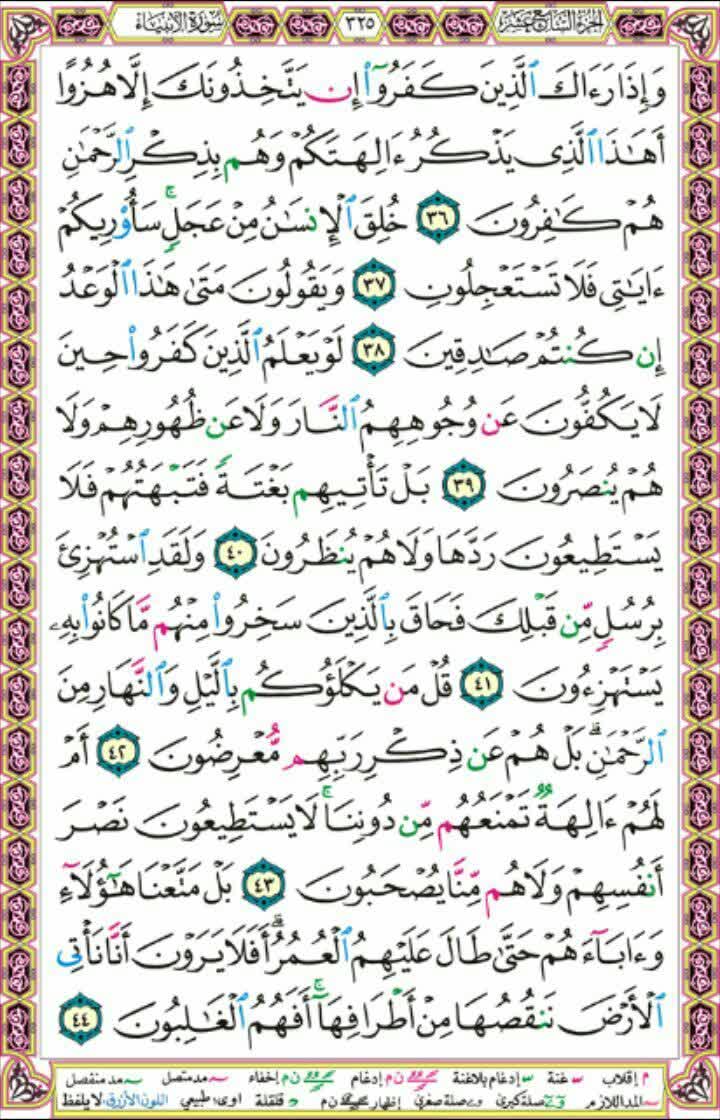 الجزء السابع عشر ٣٢٥ سورة الأنبياء
وَإِذَا رَءَاكَ ٱلَّذِينَ كَفَرُوٓاْ إِن يَتَّخِذُونَكَ إِلَّا هُزُوًا
أَهَٰذَا ٱلَّذِى يَذْكُرُ ءَالِهَتَكُمْ وَهُم بِذِكْرِ ٱلرَّحْمَٰنِ
هُمْ كَٰفِرُونَ ٣٦ خُلِقَ ٱلْإِنسَٰنُ مِنْ عَجَلٍ ۚ سَأُوْرِيكُمْ
ءَايَٰتِى فَلَا تَسْتَعْجِلُونِ ٣٧ وَيَقُولُونَ مَتَىٰ هَٰذَا ٱلْوَعْدُ
إِن كُنتُمْ صَٰدِقِينَ ٣٨ لَوْ يَعْلَمُ ٱلَّذِينَ كَفَرُواْ حِينَ
لَا يَكُفُّونَ عَن وُجُوهِهِمُ ٱلنَّارَ وَلَا عَن ظُهُورِهِمْ وَلَا
هُمْ يُنصَرُونَ ٣٩ بَلْ تَأْتِيهِم بَغْتَةً فَتَبْهَتُهُمْ فَلَا
يَسْتَطِيعُونَ رَدَّهَا وَلَا هُمْ يُنظَرُونَ ٤٠ وَلَقَدِ ٱسْتُهْزِئَ
بِرُسُلٍ مِّن قَبْلِكَ فَحَاقَ بِٱلَّذِينَ سَخِرُواْ مِنْهُم مَّا كَانُواْ بِهِۦ
يَسْتَهْزِءُونَ ٤١ قُلْ مَن يَكْلَؤُكُم بِٱلَّيْلِ وَٱلنَّهَارِ مِنَ
ٱلرَّحْمَٰنِ ۗ بَلْ هُمْ عَن ذِكْرِ رَبِّهِم مُّعْرِضُونَ ٤٢ أَمْ
لَهُمْ ءَالِهَةٌ تَمْنَعُهُم مِّن دُونِنَا ۚ لَا يَسْتَطِيعُونَ نَصْرَ
أَنفُسِهِمْ وَلَا هُم مِّنَّا يُصْحَبُونَ ٤٣ بَلْ مَتَّعْنَا هَٰٓؤُلَآءِ
وَءَابَآءَهُمْ حَتَّىٰ طَالَ عَلَيْهِمُ ٱلْعُمُرُ ۗ أَفَلَا يَرَوْنَ أَنَّا نَأْتِى
ٱلْأَرْضَ نَنقُصُهَا مِنْ أَطْرَافِهَآ ۚ أَفَهُمُ ٱلْغَٰلِبُونَ ٤٤
م إقلاب غنة إدغام بلاغنة ن م إدغام ن م إخفاء مد متصل مد منفصل
المد اللازم صلة كبرى صلة صغرى إظهار ن م قلقلة اوى: طبيعي اللون الأزرق: لا يلفظ